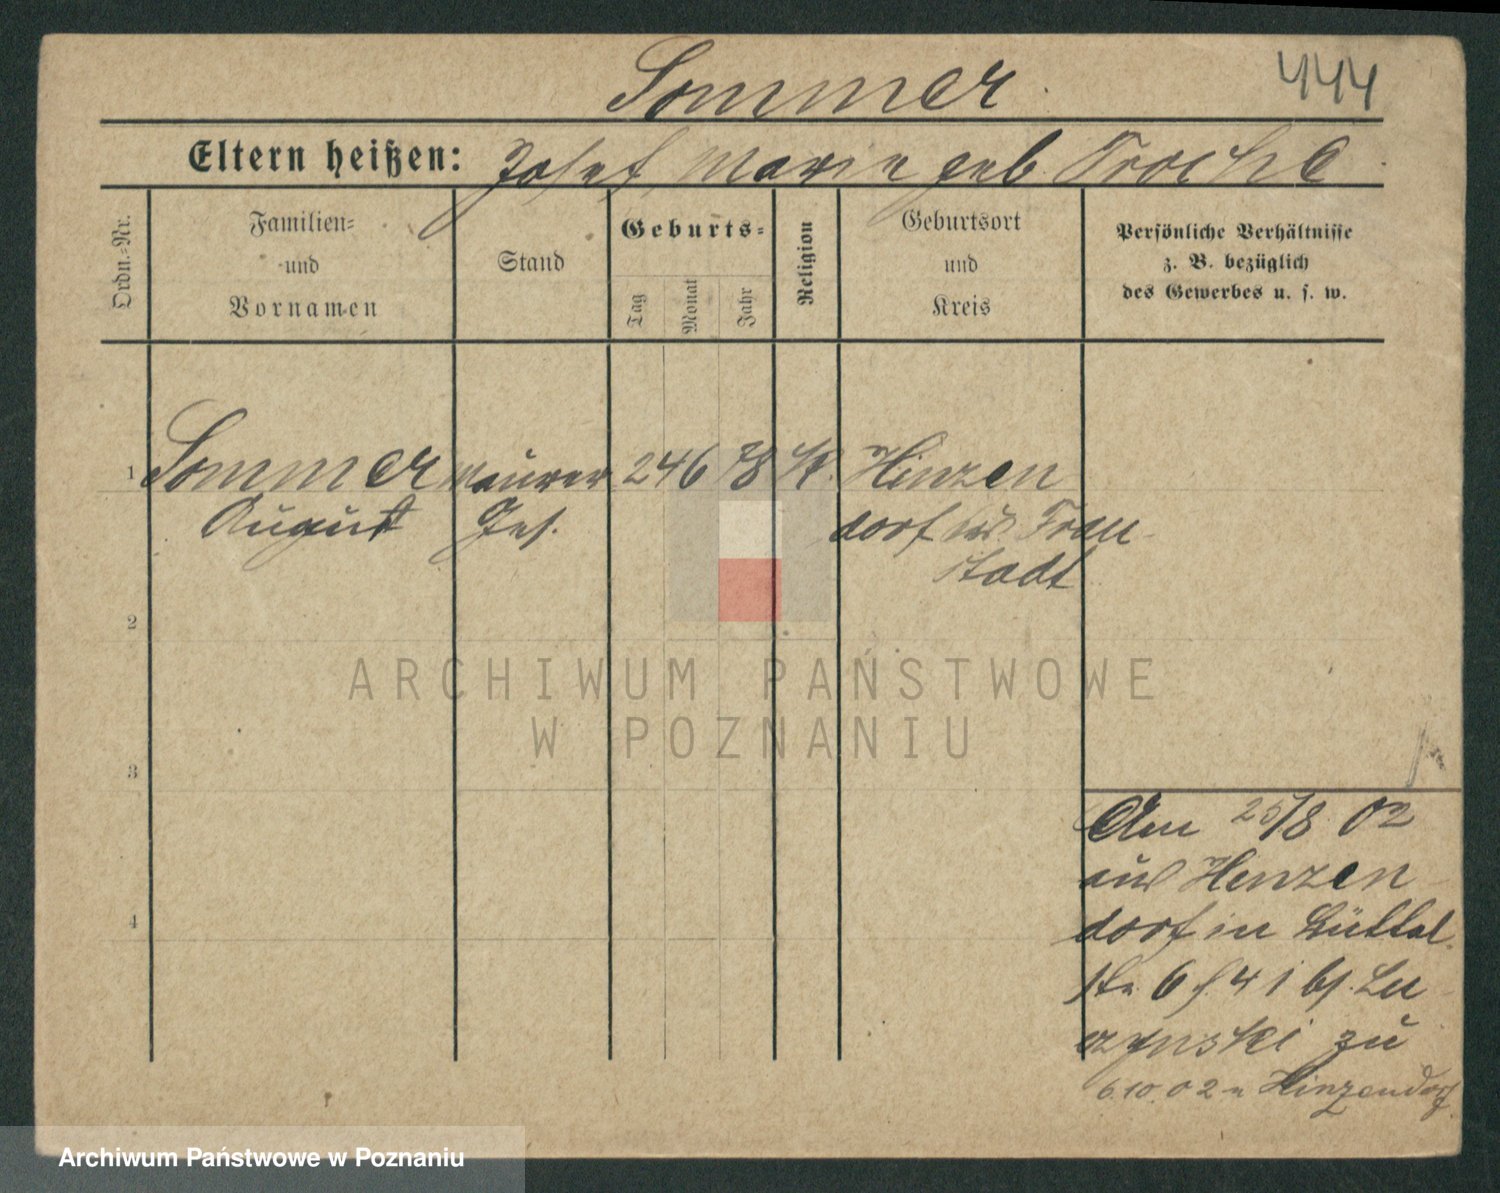 Sommer 444
Eltern heißen: Josef, Marie geb Troche
Ordn.-Nr.
Familien-
und
Vornamen
Stand
Geburts-
Tag
Monat
Jahr
Religion
Geburtsort
und
Kreis
Persönliche Verhältnisse
z. B. bezüglich
des Gewerbes u. s. w.
1 Sommer Maurer 24 6 78 K. Hinzen
August Ges. dorf Frau
stadt
2
3
4
Am 25/8 02
aus Hinzen
dorf in Büttel
str. 6 4 bs. Lu
czynski zu
6.10.02 n Hinzendorf
ARCHIWUM PAŃSTWOWE
W POZNANIU
Archiwum Państwowe w Poznaniu